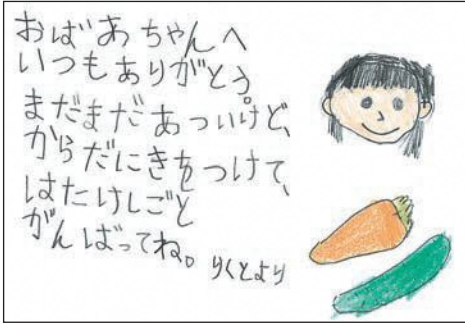 おばあちゃんへ
いつもありがとう。
まだまだあついけど、
からだにきをつけて、
はたけしごと
がんばってね。
りくとより